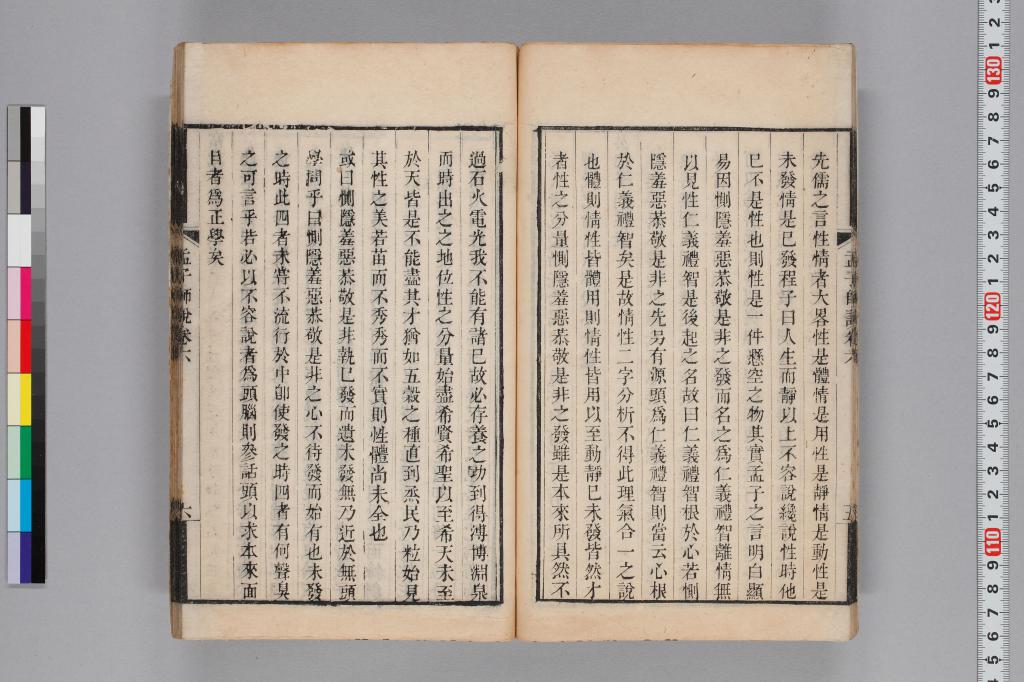 先儒之言性情者大畧性是體情是用性是靜情是動性是
未發情是已發程子曰人生而靜以上不容說纔說性時他
已不是性也則性是一件懸空之物其實孟子之言明白顯
易因惻隱羞惡恭敬是非之發而名之為仁義禮智離情無
以見性仁義禮智是後起之名故曰仁義禮智根於心若惻
隱羞惡恭敬是非之先另有源頭為仁義禮智則當云心根
於仁義禮智矣是故情性二字分析不得此理氣合一之說
也體則情性皆體用則情性皆用以至動靜已未發皆然才
者性之分量惻隱羞惡恭敬是非之發雖是本來所具然不
孟子師說卷六
五
過石火電光我不能有諸已故必存養之功到得溥博淵泉
而時出之之地位性之分量始盡希賢希聖以至希天未至
於天皆是不能盡其才猶如五穀之種直到烝民乃粒始見
其性之美若苗而不秀秀而不實則性體尚未全也
或曰惻隱羞惡恭敬是非執已發而遺未發無乃近於無頭
學問乎曰惻隱羞惡恭敬是非之心不待發而始有也未發
之時此四者未嘗不流行於中卽使發之時四者有何聲臭
之可言乎若必以不容說者為頭腦則參話頭以求本來面
目者為正學矣
孟子師說卷六
六
130
120
110